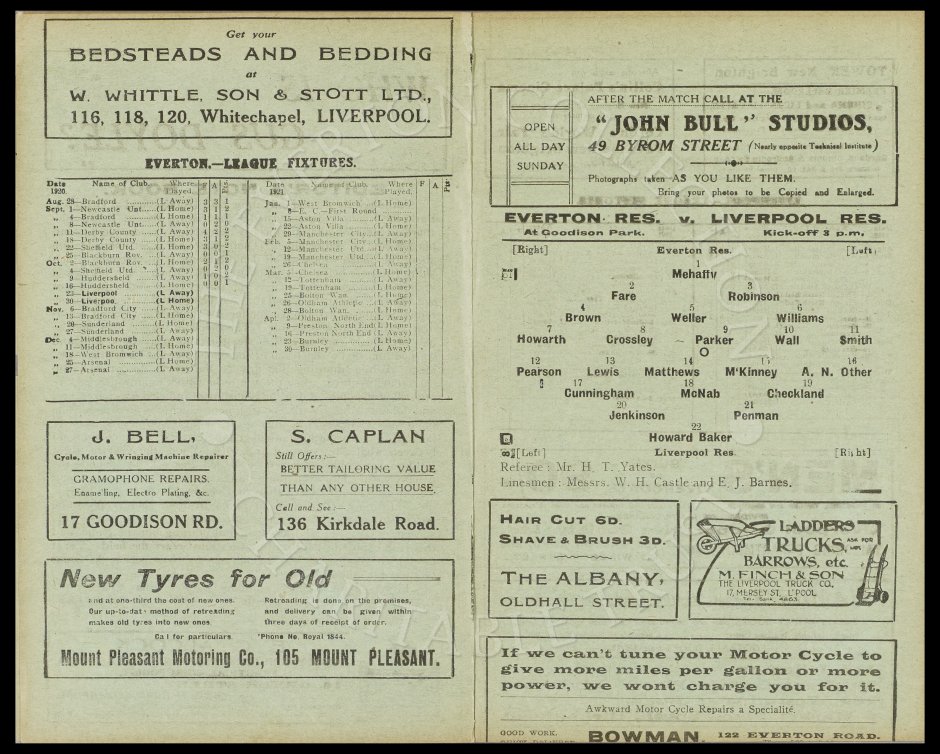 Get your
BEDSTEADS AND BEDDING
at
W. WHITTLE, SON & STOTT LTD.,
116, 118, 120, Whitechapel, LIVERPOOL.
EVERTON.—LEAGUE FIXTURES.
Date 1920. Name of Club. Where Played. F A
Aug. 28—Bradford (L Away) 3 3 1
Sept. 1—Newcastle Unt. (L Home) 3 1 2
„ 4—Bradford (L Home) 1 1 1
„ 8—Newcastle Unt. (L Away) 0 2 0
„ 11—Derby County (L Away) 4 2 2
„ 18—Derby County (L Home) 3 1 2
„ 22—Sheffield Utd. (L Home)
„ 25—Blackburn Rov. (L Away)
Oct. 2—Blackburn Rov. (L Home) 2 1 2
„ 4—Sheffield Utd. (L Away)
„ 9—Huddersfield (L Away)
„ 16—Huddersfield (L Home) 0 0 1
„ 23—Liverpool (L Away)
„ 30—Liverpoo. (L Home)
Nov. 6—Bradford City (L Away)
„ 13—Bradford City (L Home)
„ 20—Sunderland (L Home)
„ 27—Sunderland (L Away)
Dec. 4—Middlesbrough (L Away)
„ 11—Middlesbrough (L Home)
„ 18—West Bromwich (L Away)
„ 25—Arsenal (L Home)
„ 27—Arsenal (L Away)
Date 1921. Name of Club. Where Played. F A Pts
Jan. 1—West Bromwich (L Home)
„ 8—E. C.—First Round
„ 15—Aston Villa (L Home)
„ 22—Aston Villa (L Away)
„ 29—Manchester City (L Away)
Feb. 5—Manchester City (L Home)
„ 12—Manchester Utd (L Away)
„ 19—Manchester Utd (L Home)
„ 26—Chelsea (L Away)
Mar. 5—Chelsea (L Home)
„ 12—Tottenham (L Away)
„ 19—Tottenham (L Home)
„ 25—Bolton Wan. (L Home)
„ 26—Oldham Athletic (L Away)
„ 28—Bolton Wan. (L Home)
Apl. 2—Oldham Athletic (L Home)
„ 9—Preston. North End (L Home)
„ 16—Preston. North End (L Away)
„ 23—Burnley (L Home)
„ 30—Burnley (L Away)
J. BELL,
Cycle, Motor & Wringing Machine Repairer
GRAMOPHONE REPAIRS.
Enamelling, Electro Plating, &c.
17 GOODISON RD.
S. CAPLAN
Still Offers:—
BETTER TAILORING VALUE
THAN ANY OTHER HOUSE.
Call and See :—
136 Kirkdale Road.
New Tyres for Old
and at one-third the cost of new ones.
Our up-to-date method of retreading
makes old tyres into new ones
Call for particulars.
Retreading is done on the premises,
and delivery can be given within
three days of receipt of order.
'Phone No. Royal 1844.
Mount Pleasant Motoring Co., 105 MOUNT PLEASANT.
OPEN
ALL DAY
SUNDAY
AFTER THE MATCH CALL AT THE
"JOHN BULL" STUDIOS,
49 BYROM STREET (Nearly opposite Technical Institute)
Photographs taken AS YOU LIKE THEM.
Bring your photos to be Copied and Enlarged.
EVERTON RES. v. LIVERPOOL RES.
At Goodison Park. Kick-off 3 p.m.
[Right] Everton Res. [Left]
1
Mehaffy
2 3
Fare Robinson
4 5 6
Brown Weller Williams
7 8 9 10 11
Howarth Crossley Parker Wall Smith
O
12 13 14 15 16
Pearson Lewis Matthews M'Kinney A. N. Other
17 18 19
Cunningham McNab Checkland
20 21
Jenkinson Penman
22
Howard Baker
[Left] Liverpool Res. [Right]
Referee : Mr. H. T. Yates.
Linesmen : Messrs. W. H. Castle and E. J. Barnes.
HAIR CUT 6D.
SHAVE & BRUSH 3D.
THE ALBANY,
OLDHALL STREET.
LADDERS
TRUCKS, ASK FOR
BARROWS, etc.
M. FINCH & SON
THE LIVERPOOL TRUCK CO.,
17, MERSEY ST. L'POOL
Tel. Bank, 4863.
If we can't tune your Motor Cycle to
give more miles per gallon or more
power, we wont charge you for it.
Awkward Motor Cycle Repairs a Specialité.
GOOD WORK,
BOWMAN, 122 EVERTON ROAD.